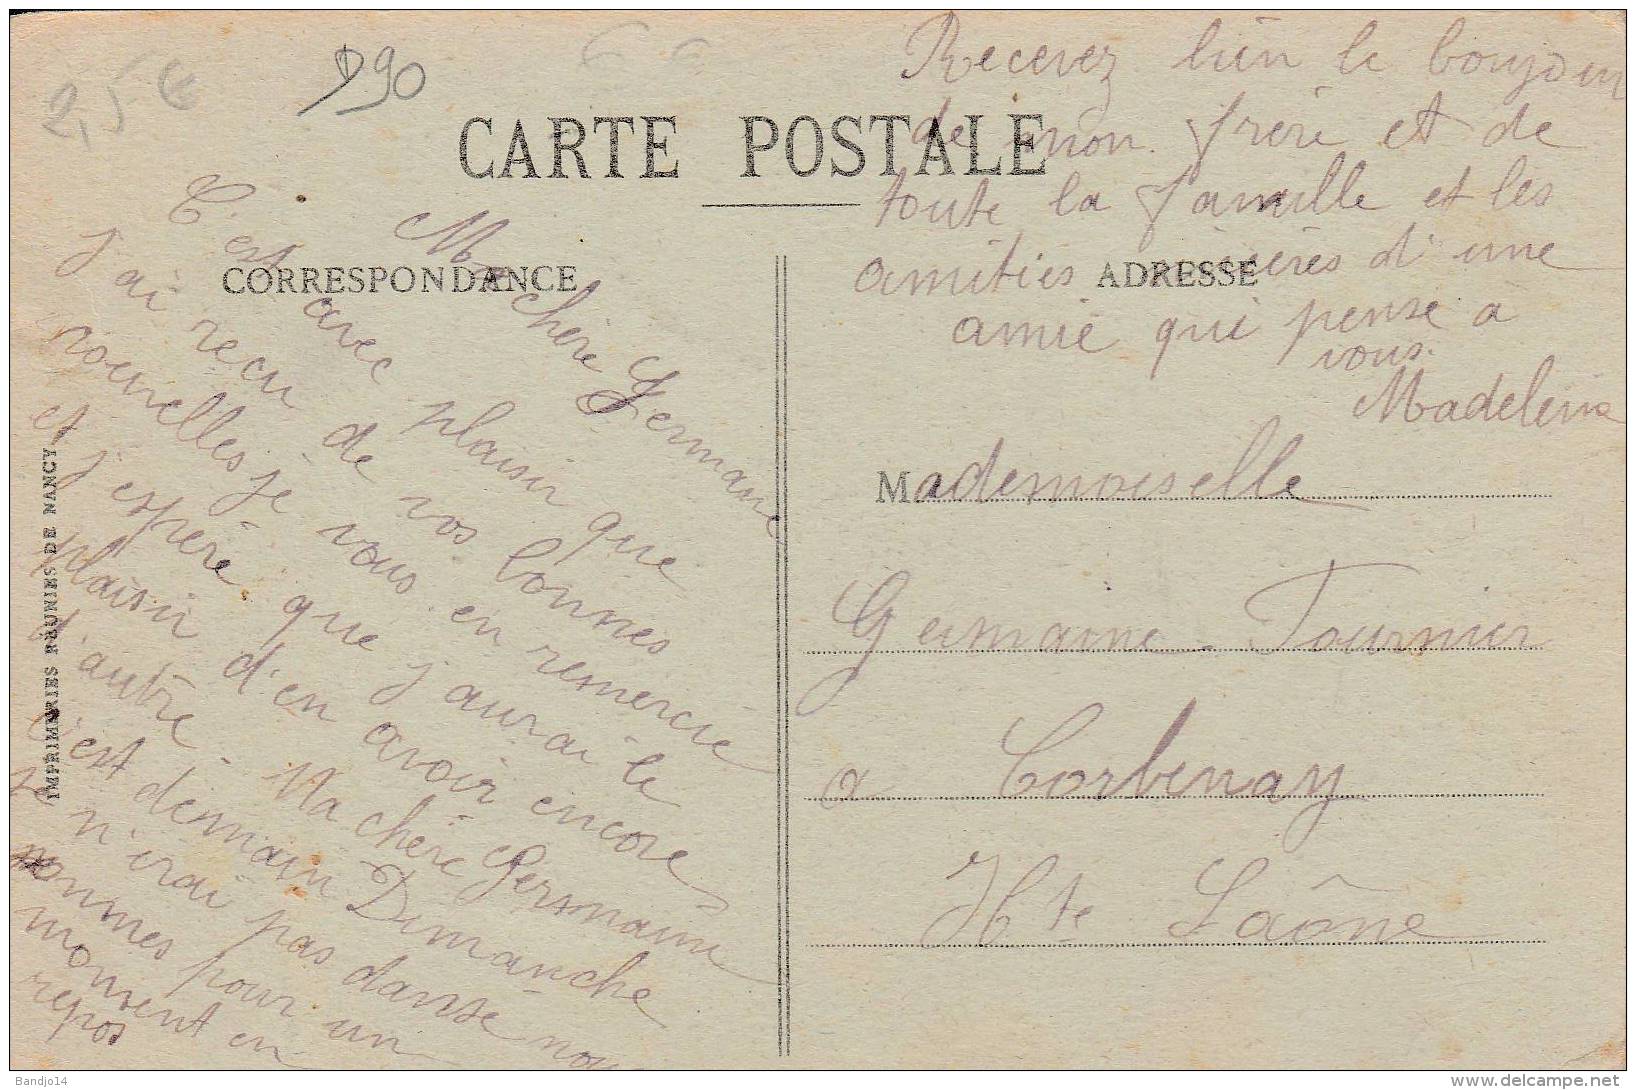 2,5 €
D90
CARTE POSTALE
CORRESPONDANCE
Ma chère Germaine
C'est avec plaisir que
j'ai reçu de vos bonnes
nouvelles je vous en remercie
et j'espère que j'aurai le
plaisir d'en avoir encore
d'autre. Ma chère Germaine
c'est demain Dimanche
Je n'irai pas danse nous
sommes pour un
moment en
repos
Recevez bien le bonjour
de mon frère et de
toute la famille et les
amitiés sincères d'une
amie qui pense à
vous.
Madeleine
ADRESSE
Mademoiselle
Germaine Tournier
a Corbenay
Hte Saône
IMPRIMERIES RÉUNIES DE NANCY
Bandjo14
www.delcampe.net